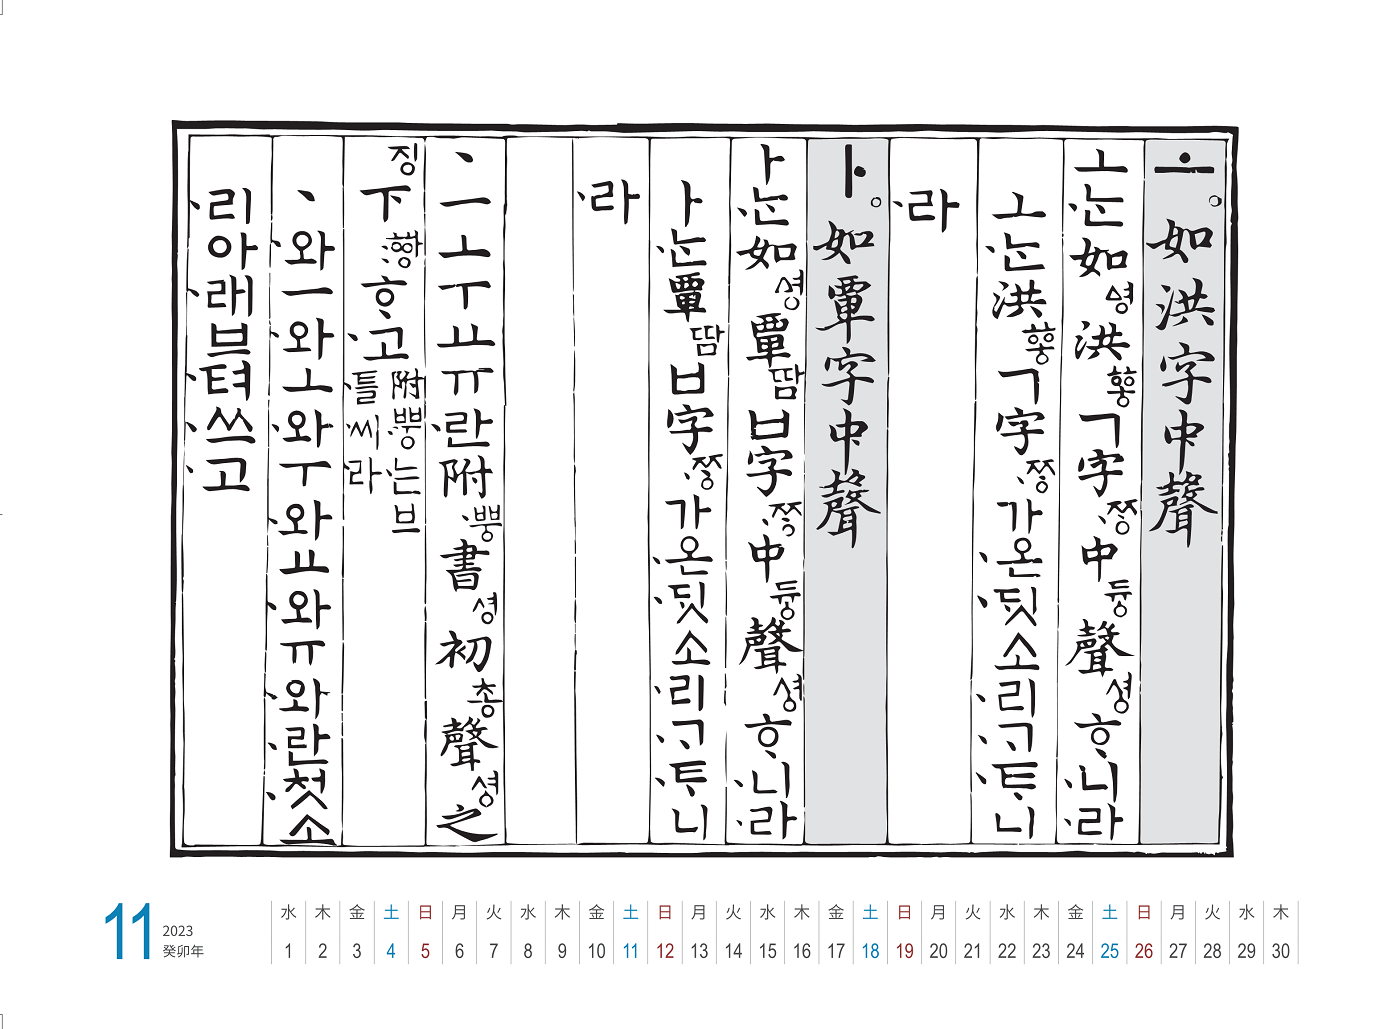 ㅗ。如洪字中聲
ㅗ·ᄂᆞᆫ如ᅀᅧᆼ洪ᅘᅩᇰㄱ字·ᄍᆞᆼ中듀ᇰ聲셔ᇰᄒᆞ·니·라
ㅗ·ᄂᆞᆫ洪ᅘᅩᇰㄱ字·ᄍᆞᆼ가·온·딧소·리·ᄀᆞ·ᄐᆞ니
·라
ㅏ。如覃字中聲
ㅏ·ᄂᆞᆫ如ᅀᅧᆼ覃땀ㅂ字·ᄍᆞᆼ中듀ᇰ聲셔ᇰᄒᆞ·니·라
ㅏ·ᄂᆞᆫ覃땀ㅂ字·ᄍᆞᆼ가·온·딧소·리·ᄀᆞ·ᄐᆞ니
·라
ㆍㅡㅗㅜㅛㅠ·란附·뿌ᇰ書셔ᇰ初총聲셔ᇰ之
징下:ᅘᅡᇰᄒᆞ·고附·뿌ᇰ·는브·틀·씨·라
ㆍ·와ㅡ·와ㅗ·와ㅜ·와ㅛ·와ㅠ·와·란·첫소
·리아·래브·텨·쓰·고
11
2023
癸卯年
水 木 金 土 日 月 火 水 木 金 土 日 月 火 水 木 金 土 日 月 火 水 木 金 土 日 月 火 水 木
1 2 3 4 5 6 7 8 9 10 11 12 13 14 15 16 17 18 19 20 21 22 23 24 25 26 27 28 29 30